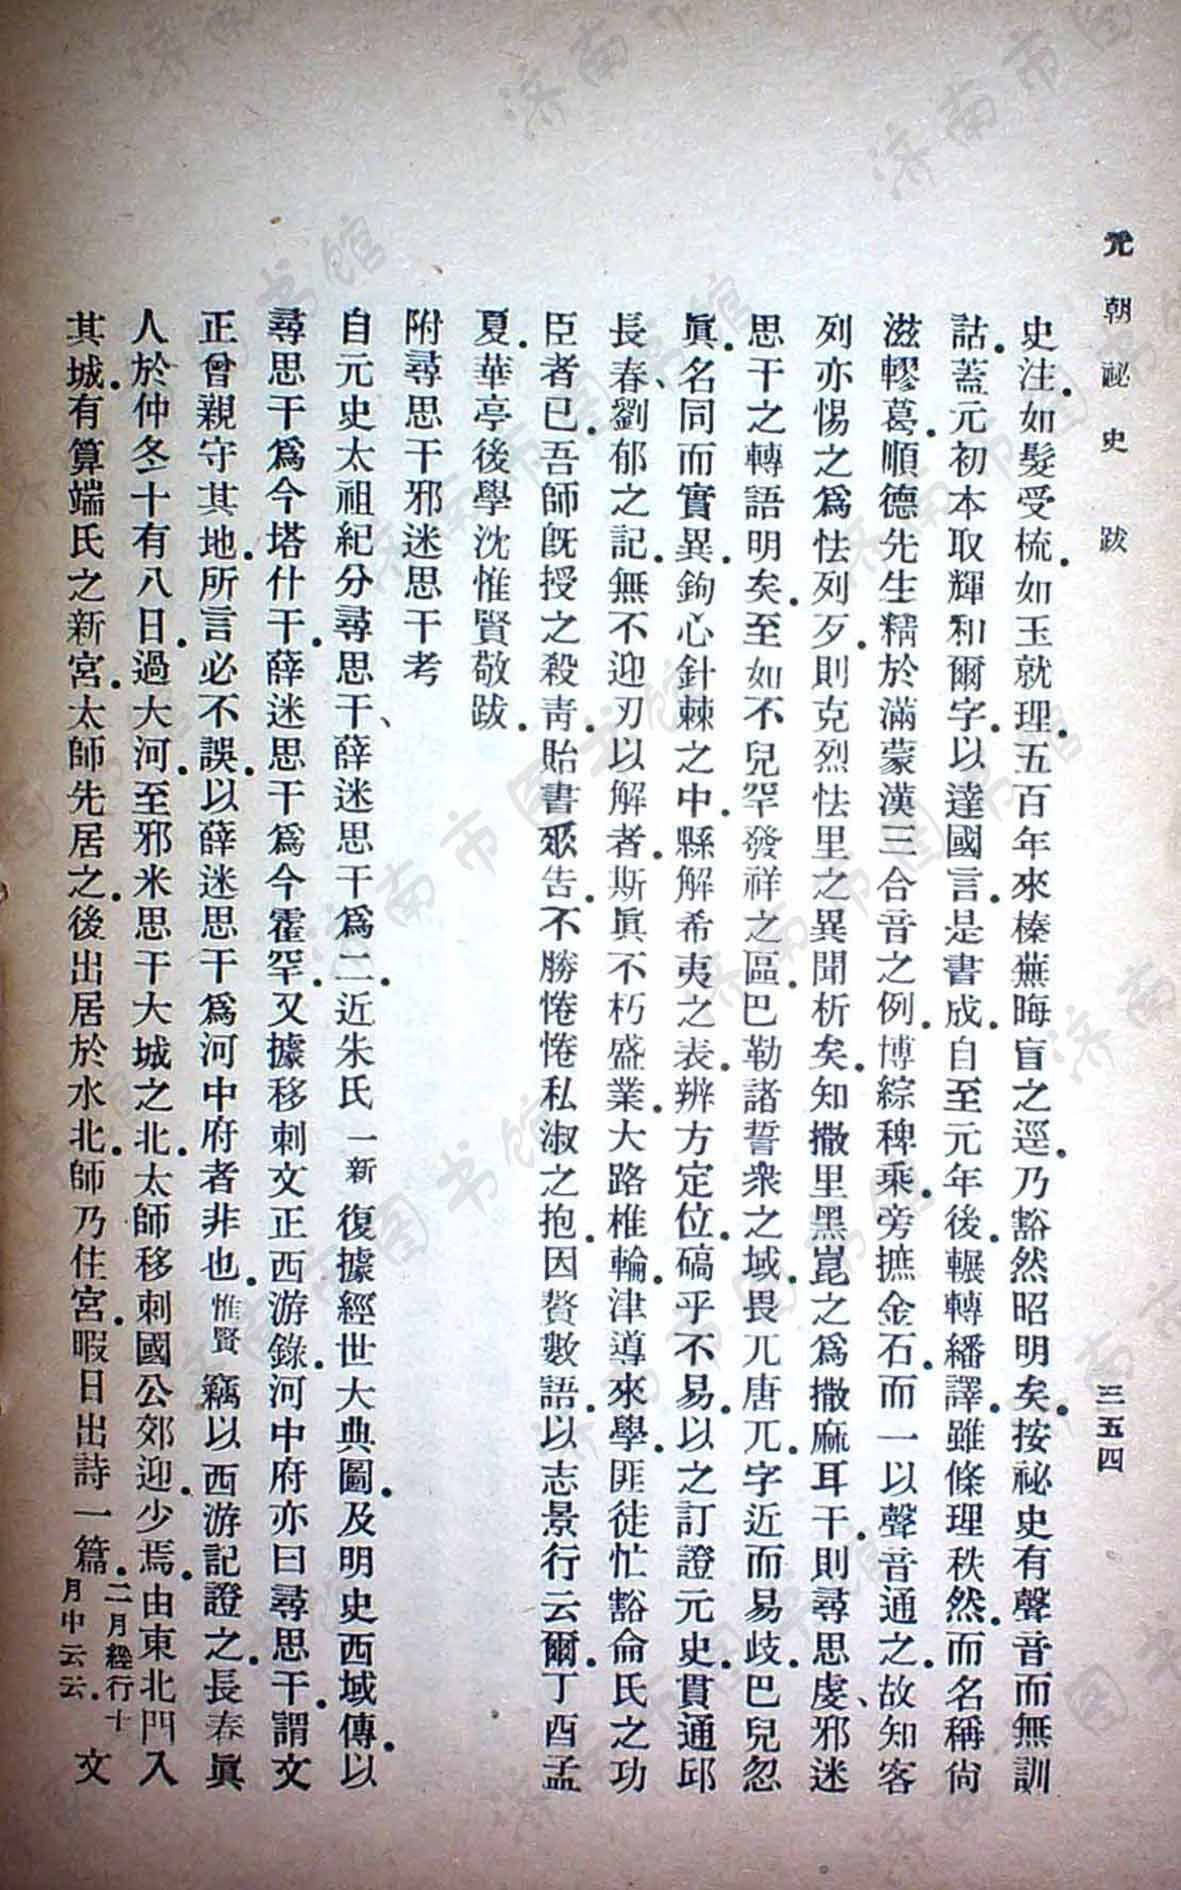 元朝祕史 跋 三五四
史注.如髮受梳.如玉就理.五百年來榛蕪晦盲之逕.乃豁然昭明矣.按祕史有聲音而無訓
詁.蓋元初本取輝和爾字.以達國言.是書成.自至元年後.輾轉繙譯.雖條理秩然.而名稱尙
滋轇葛.順德先生精於滿蒙漢三合音之例.博綜稗乘.旁摭金石.而一以聲音通之.故知客
列亦惕之爲怯列歹.則克烈怯里之異聞析矣.知撒里黑崑之爲撒麻耳干.則尋思虔、邪迷
思干之轉語明矣.至如不兒罕發祥之區.巴勒諸誓衆之域.畏兀唐兀.字近而易歧.巴兒忽
眞.名同而實異.鉤心針棘之中.縣解希夷之表.辨方定位.碻乎不易.以之訂證元史.貫通邱
長春、劉郁之記.無不迎刃以解者.斯眞不朽盛業.大路椎輪.津導來學.匪徒忙豁侖氏之功
臣者已.吾師旣授之殺靑.貽書眎吿.不勝惓惓私淑之抱.因贅數語.以志景行云爾.丁酉孟
夏.華亭後學沈惟賢敬跋.
附尋思干邪迷思干考
自元史太祖紀分尋思干、薛迷思干爲二.近朱氏一新復據經世大典圖.及明史西域傳.以
尋思干爲今塔什干.薛迷思干爲今霍罕.又據移刺文正西游錄.河中府亦曰尋思干.謂文
正曾親守其地.所言必不誤.以薛迷思干爲河中府者非也.惟賢竊以西游記證之.長春眞
人於仲冬十有八日.過大河.至邪米思干大城之北.太師移刺國公郊迎.少焉.由東北門入
其城.有算端氏之新宮.太師先居之.後出居於水北.師乃住宮.暇日出詩一篇.二月經行十月中云云.文